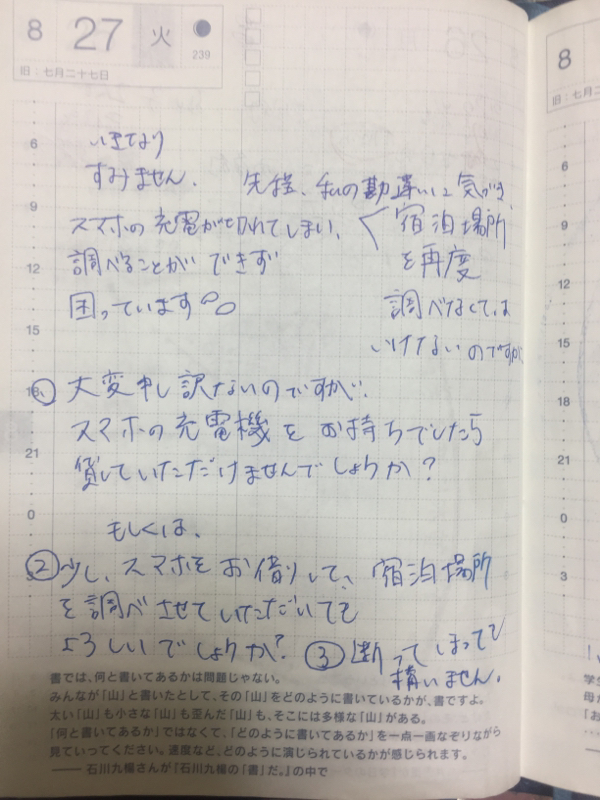 8
27
火
239
旧：七月二十七日
8
旧：七月二
いきなり
すみません。
先程、私の勘違いに気づき、
スマホの充電が切れてしまい、
宿泊場所
を再度
調べなくては
いけないのですが
調べることができず
困っています
① 大変申し訳ないのですが、
スマホの充電機をお持ちでしたら
貸していただけませんでしょうか？
もしくは、
② 少し、スマホをお借りして、宿泊場所
を調べさせていただいても
よろしいでしょうか？
③ 断ってしまっても
構いません。
6
9
12
15
18
21
0
3
6
9
12
15
18
21
0
3
書では、何と書いてあるかは問題じゃない。
みんなが「山」と書いたとして、その「山」をどのように書いているかが、書ですよ。
太い「山」も小さな「山」も歪んだ「山」も、そこには多様な「山」がある。
「何と書いてあるか」ではなくて、「どのように書いてあるか」を一点一画なぞりながら
見ていってください。速度など、どのように演じられているかが感じられます。
—— 石川九楊さんが『石川九楊の「書」だ。』の中で